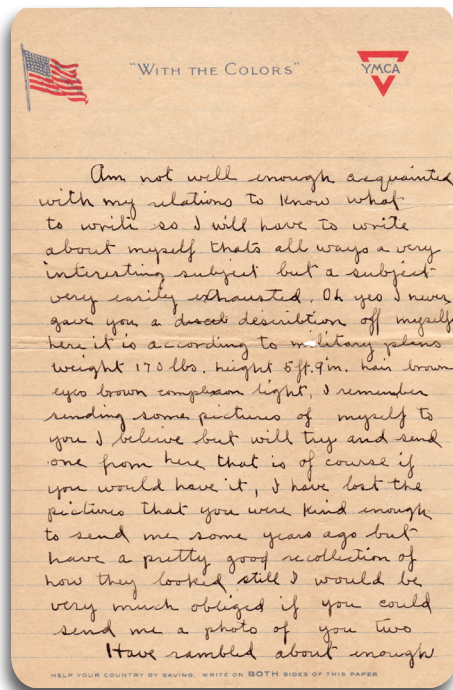 "WITH THE COLORS"
YMCA
Am not well enough acquainted
with my relations to know what
to write so I will have to write
about myself thats all ways a very
interesting subject but a subject
very easily exhausted. Oh yes I never
gave you a describtion off myself
here it is according to military plans
weight 170 lbs. height 5 ft. 9 in. hair brown
eyes brown complexon light, I remember
sending some pictures of myself to
you I beleive but will try and send
one from here that is of course if
you would have it, I have lost the
pictures that you were kind enough
to send me some years ago but
have a pretty good recollection of
how they looked still I would be
very much obliged if you could
send me a photo of you two
Have rambled about enough
HELP YOUR COUNTRY BY SAVING. WRITE ON BOTH SIDES OF THIS PAPER